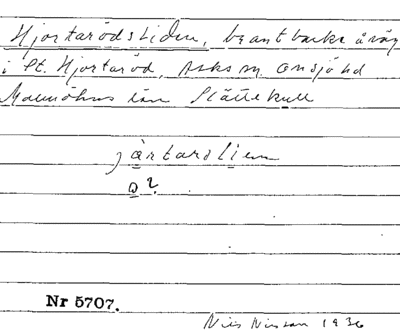 Hjortarödsliden, brant backe å väg
i St. Hjortaröd, Asks sn. Onsjö hd
Malmöhus län Slättekull
jårtarsliem
o?
Nr 5707.
Nils Nilsson 1936